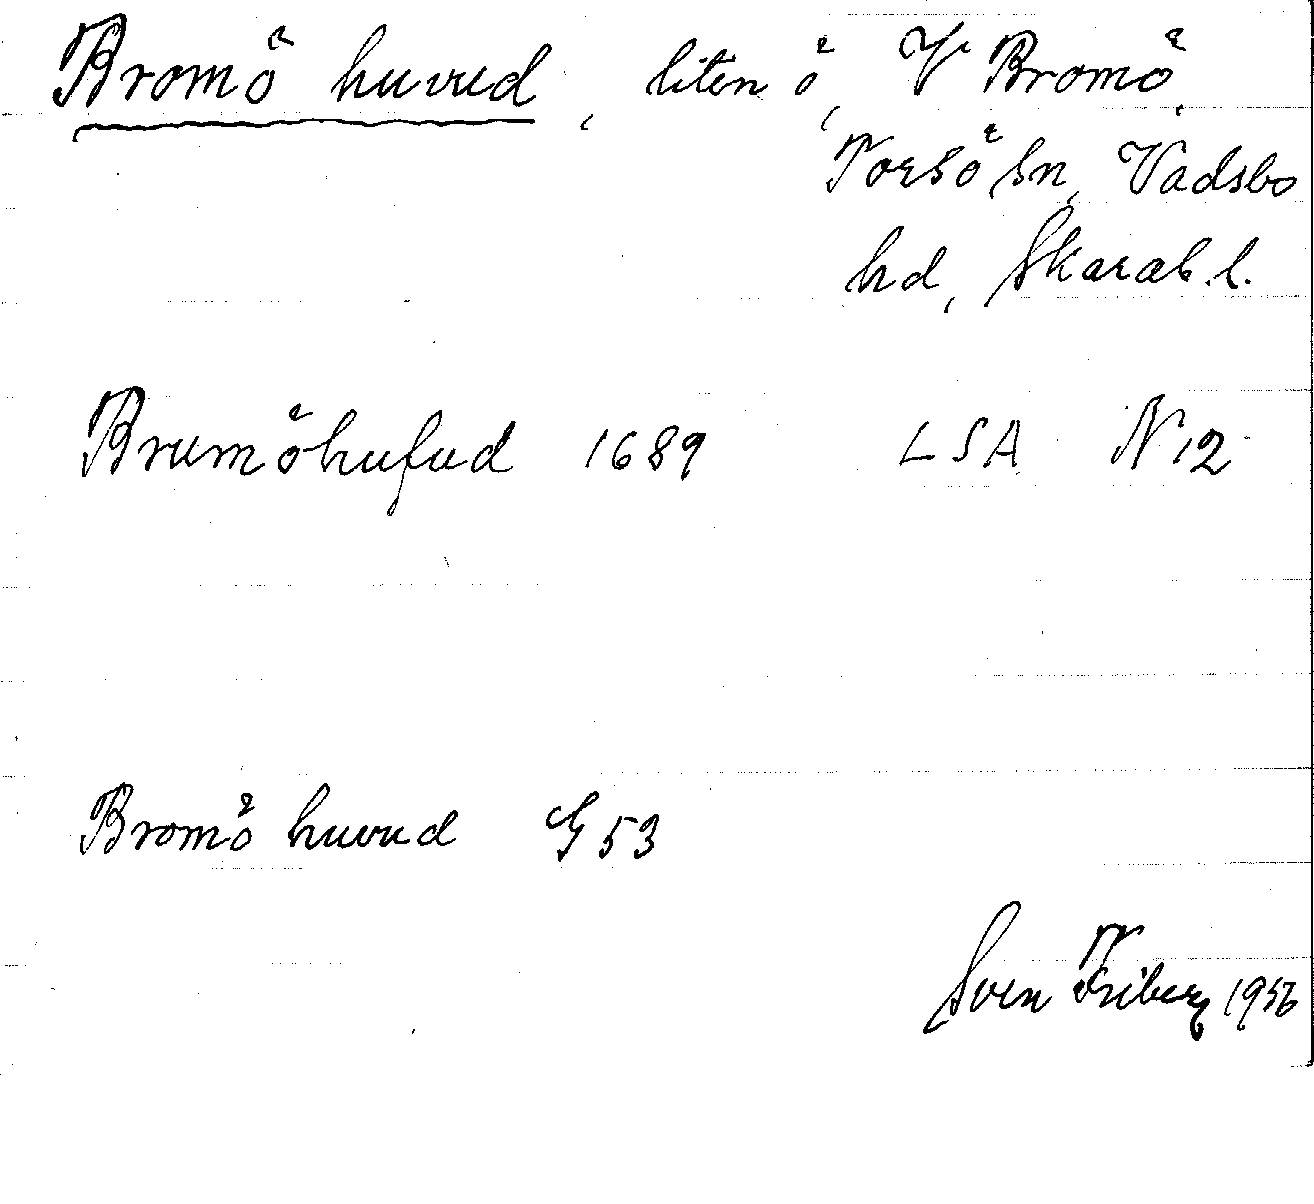 Bromö huvud, liten ö, V Bromö,
Torsö sn, Vadsbo
hd, Skarab. l.
Brumöhufud 1689 LSA N 12
Bromö huvud G 53
Sven Friberg 1956